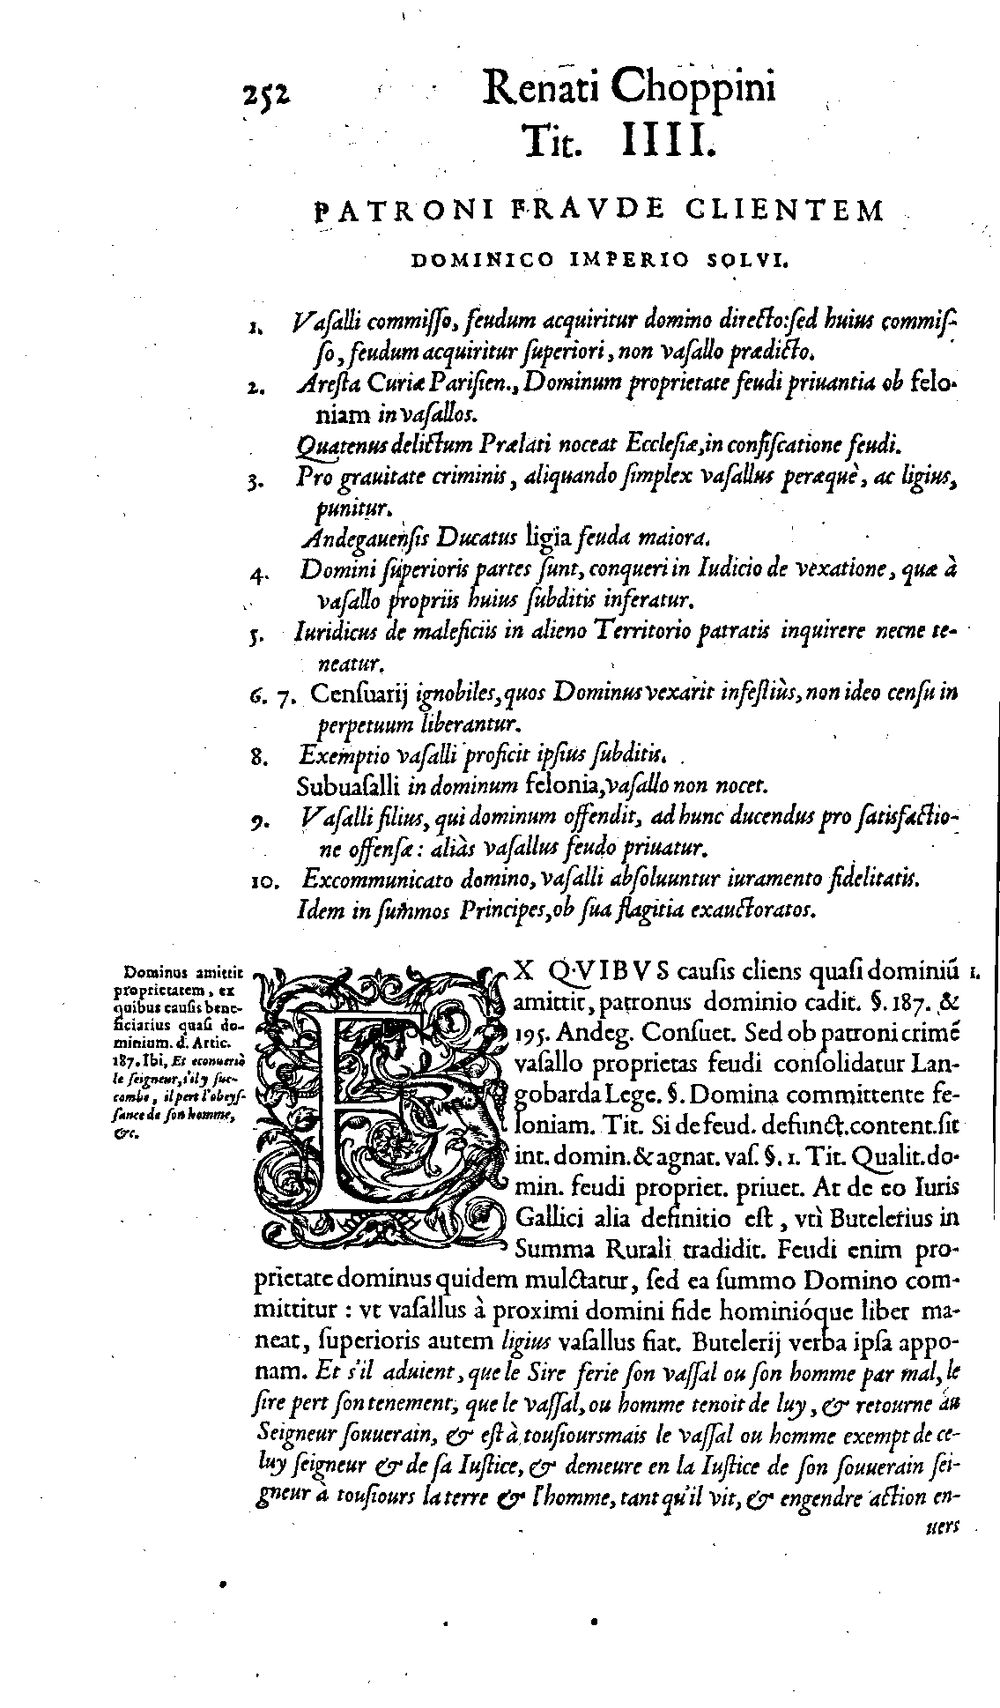 252 Renati Choppini
Tit. IIII.
PATRONI FRAVDE CLIENTEM
DOMINICO IMPERIO SOLVI.
1. Vaſalli commiſſo, feudum acquiritur domino directo: ſed huius commiſ-
ſo, feudum acquiritur ſuperiori, non vaſallo prædicto.
2. Areſta Curiæ Pariſien., Dominum proprietate feudi priuantia ob felo-
niam in vaſallos.
Quatenus delictum Prælati noceat Eccleſiæ, in confiſcatione feudi.
3. Pro grauitate criminis, aliquando ſimplex vaſallus peræquè, ac ligius,
punitur.
Andegauenſis Ducatus ligia feuda maiora.
4. Domini ſuperioris partes ſunt, conqueri in Iudicio de vexatione, quæ à
vaſallo propriis huius ſubditis inferatur.
5. Iuridicus de maleficiis in alieno Territorio patratis inquirere necne te-
neatur.
6. 7. Cenſuarij ignobiles, quos Dominus vexarit infeſtiùs, non ideo cenſu in
perpetuum liberantur.
8. Exemptio vaſalli proficit ipſius ſubditis.
Subuaſalli in dominum felonia, vaſallo non nocet.
9. Vaſalli filius, qui dominum offendit, ad hunc ducendus pro ſatisfactio-
ne offenſæ: aliàs vaſallus feudo priuatur.
10. Excommunicato domino, vaſalli abſoluuntur iuramento fidelitatis.
Idem in ſummos Principes, ob ſua flagitia exauctoratos.
Dominus amittit
proprietatem, ex
quibus cauſis bene-
ficiarius quaſi do-
minium. d. Artic.
187. Ibi, Et econuerſò
le ſeigneur, s'il y ſuc-
combe, il pert l'obeyſ-
ſance de ſon homme,
&c.
EX QVIBVS cauſis cliens quaſi dominiũ 1.
amittit, patronus dominio cadit. §. 187. &
195. Andeg. Conſuet. Sed ob patroni crimẽ
vaſallo proprietas feudi conſolidatur Lan-
gobarda Lege. §. Domina committente fe-
loniam. Tit. Si de feud. defunct. content. ſit
int. domin. & agnat. vaſ. §. 1. Tit. Qualit. do-
min. feudi propriet. priuet. At de eo Iuris
Gallici alia definitio eſt, vtì Butelerius in
Summa Rurali tradidit. Feudi enim pro-
prietate dominus quidem mulctatur, ſed ea ſummo Domino com-
mittitur: vt vaſallus à proximi domini fide hominióque liber ma-
neat, ſuperioris autem ligius vaſallus fiat. Butelerij verba ipſa appo-
nam. Et s'il aduient, que le Sire ferie ſon vaſſal ou ſon homme par mal, le
ſire pert ſon tenement, que le vaſſal, ou homme tenoit de luy, & retourne au
Seigneur ſouuerain, & eſt à touſioursmais le vaſſal ou homme exempt de ce-
luy ſeigneur & de ſa Iuſtice, & demeure en la Iuſtice de ſon ſouuerain ſei-
gneur à touſiours la terre & l'homme, tant qu'il vit, & engendre action en-
uers